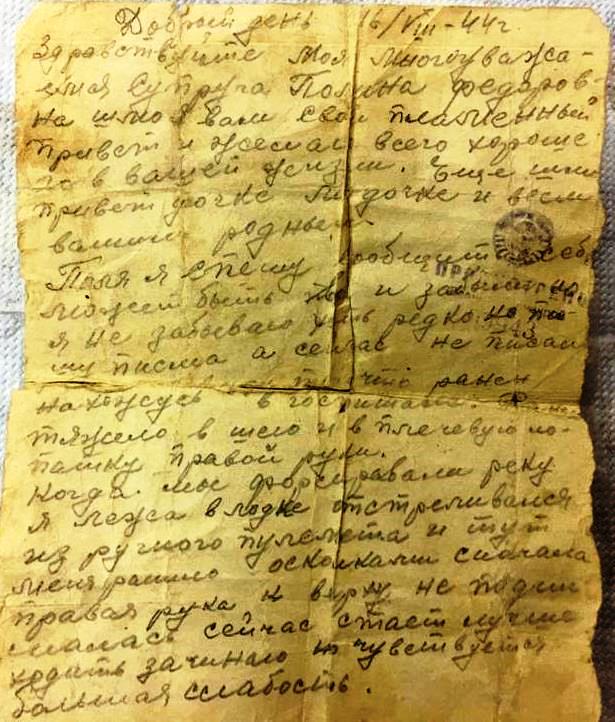 Добрый день 16/VIII-44г.
Здравствуйте моя многоуважа-
емая супруга Полина Федоров-
на шлю я вам свой пламенный
привет и желаю всего хороше
го в вашей жизни. Еще шлю
привет дочке Лидочке и всем
вашим родным.
Поля я спешу сообщить о себе
может быть ты и забыла но
я не забываю хоть редко но пи-
шу писма а сейчас не писал
что ранен
нахожусь в госпитале.
тяжело в шею и в плечевую ло-
патку правой руки.
Когда мы форсировали реку
я лежа в лодке отстреливался
из ручного пулемета и тут
меня ранило осколками сначала
правая рука к верху не подни-
малась сейчас стает лучше
ходить зачинаю но чувствуется
большая слабость.